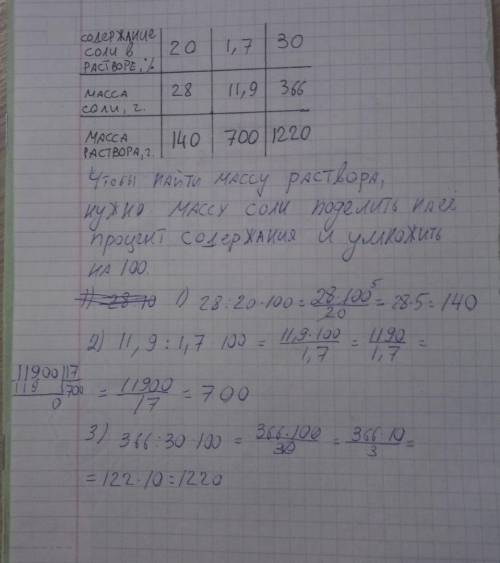 СОДЕРЖАНИЕ СОЛИ В РАСТВОРЕ, % 20 1,7 30
МАССА СОЛИ, г. 28 11,9 366
МАССА РАСТВОРА, г. 140 700 1220
Чтобы найти массу раствора,
нужно массу соли поделить на её
процент содержания и умножить
на 100.
1) 28 : 20 · 100 = 28·100⁵/20 = 28·5 = 140
2) 11,9 : 1,7 · 100 = 11,9·100/1,7 = 1190/1,7 =
11900 | 17
119 | 700
0
= 11900/17 = 700
3) 366 : 30 · 100 = 366·100/30 = 366·10/3 =
= 122·10 = 1220